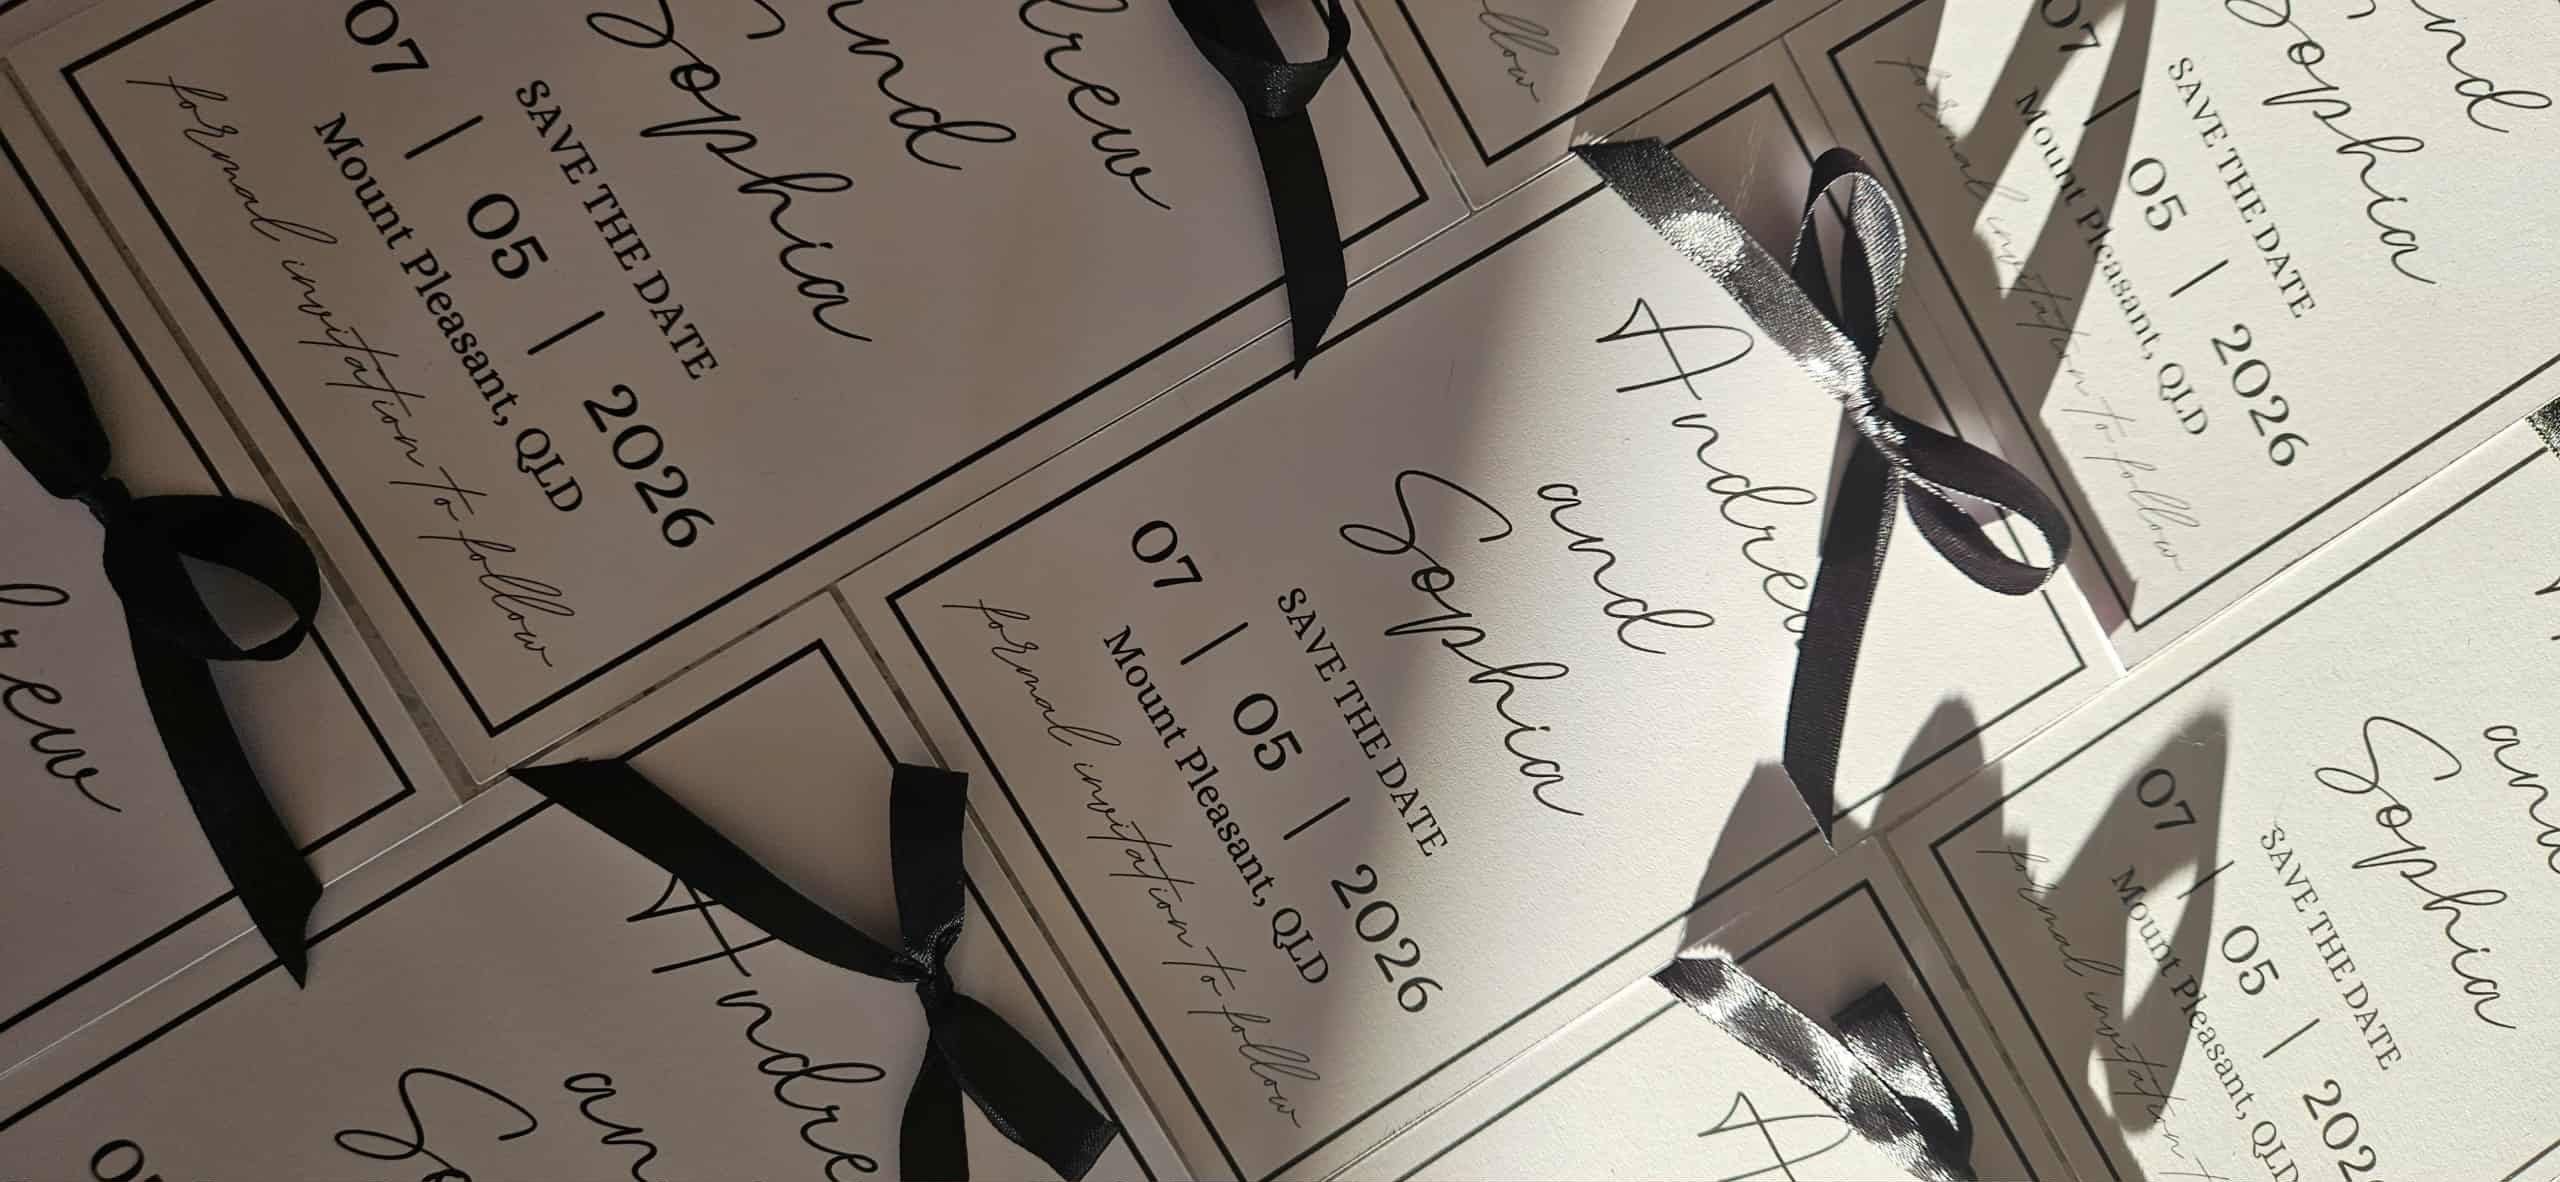 drew
and
Sophia
SAVE THE DATE
07 | 05 | 2026
Mount Pleasant, QLD
formal invitation to follow
follow
and
Sophia
SAVE THE DATE
07 | 05 | 2026
Mount Pleasant, QLD
formal invitation to follow
Andrew
and
Sophia
SAVE THE DATE
07 | 05 | 2026
Mount Pleasant, QLD
formal invitation to follow
drew
Andre
an
So
and
Sophia
SAVE THE DATE
07 | 05 | 202
Mount Pleasant, QLD
formal invitation t
A